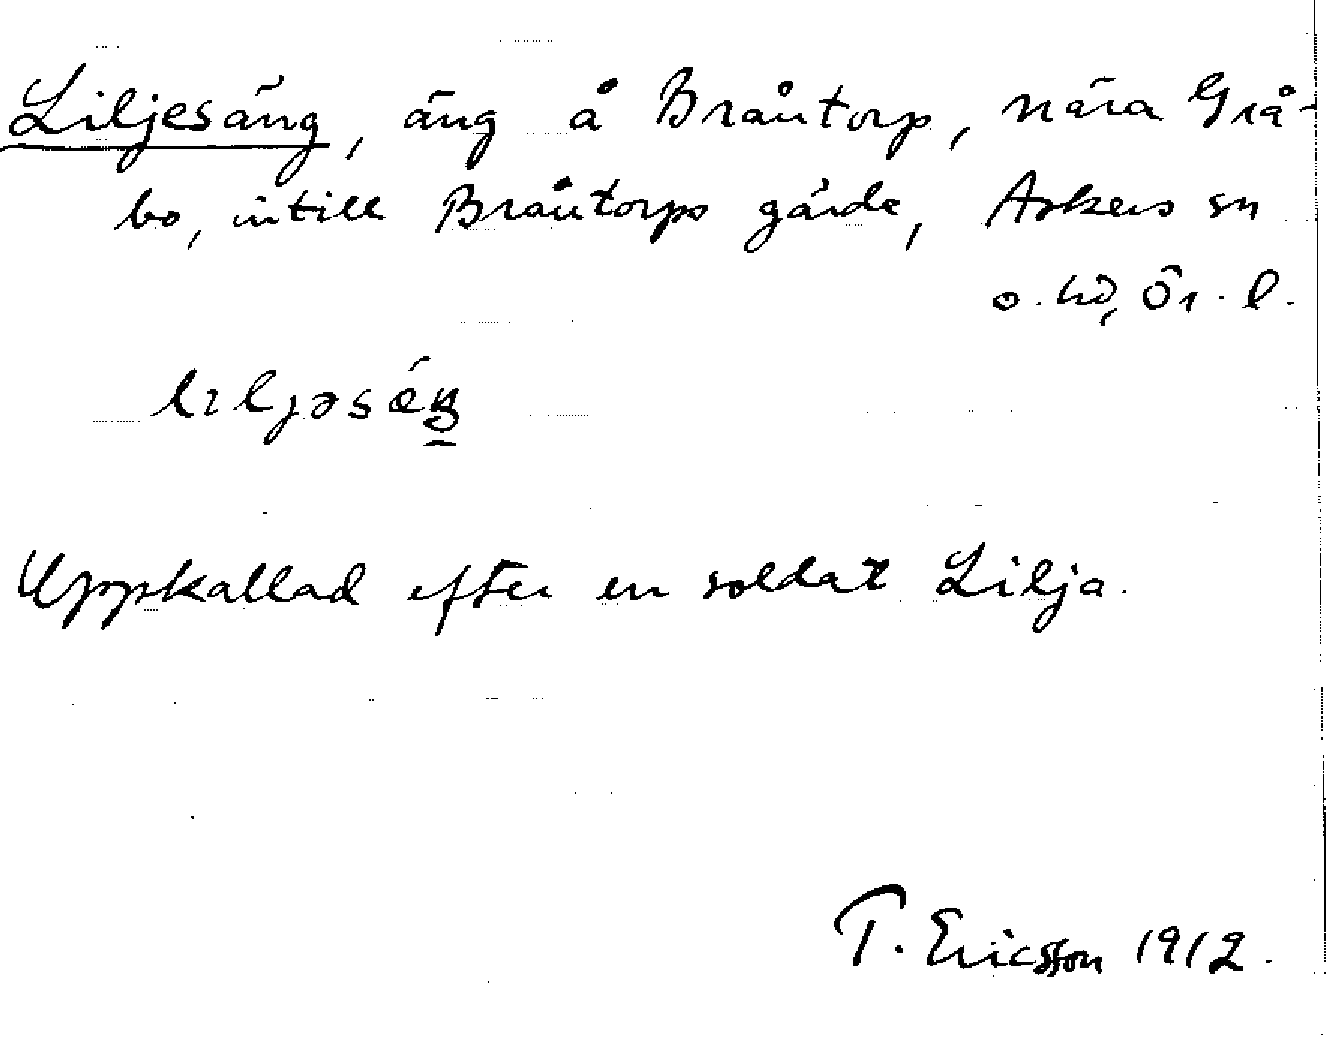 Liljesäng, äng å Bråtorp, nära Grå-
bo, intill Bråtorps gärde, Askers sn
o. hd, Ör. l.
Uppkallad efter en soldat Lilja.
T. Ericsson 1912.